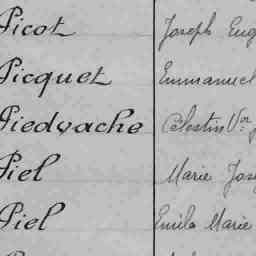 Picot Joseph Eug
Picquet Emmanuel
Piedvache Célestin Vor
Piel Marie Jose
Piel Emile Marie